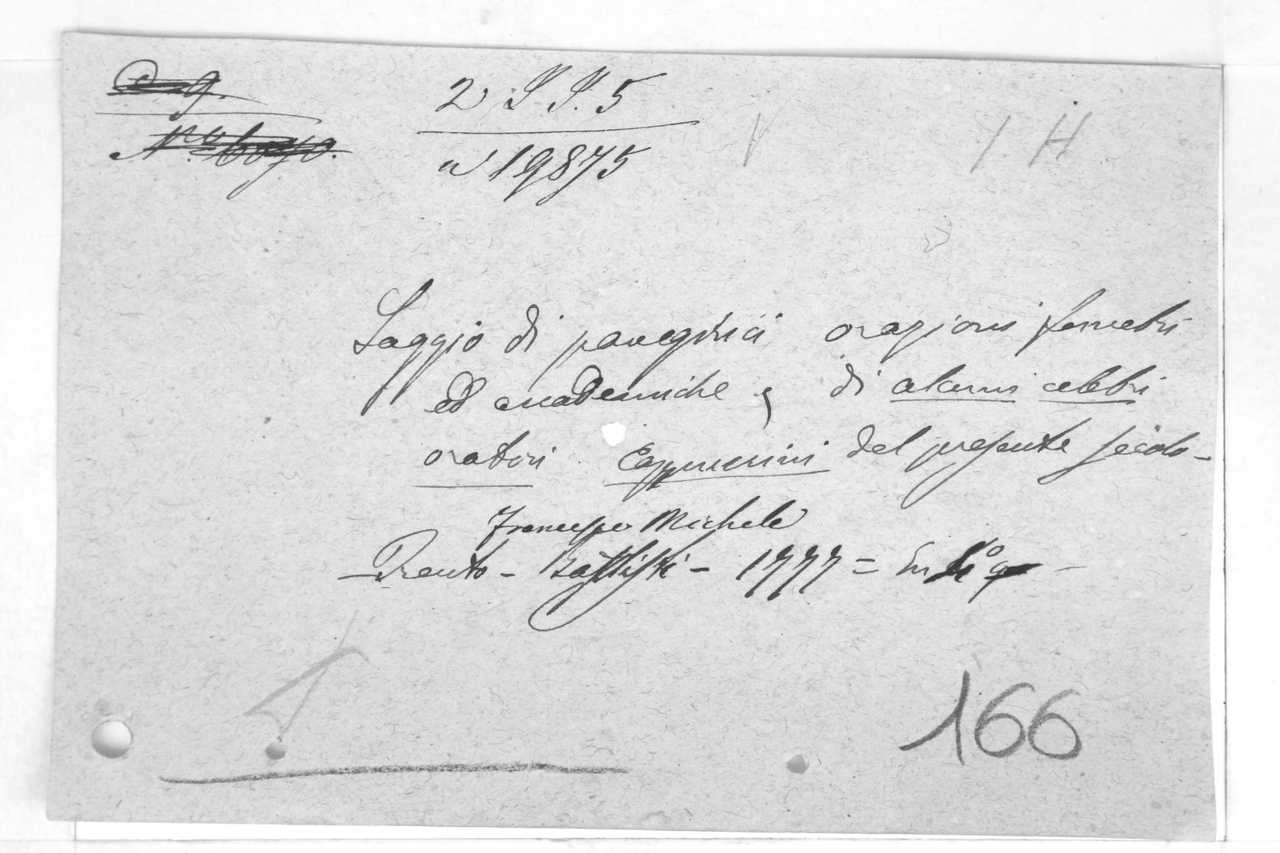 2 S S. 5
n 19875
Saggio di panegirici orazioni funebri
ed accademiche, di alcuni celebri
oratori Cappuccini del presente secolo -
Francesco Michele
- Trento - Battisti - 1777 = In 4°
166